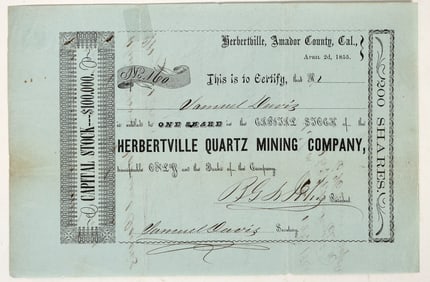 Herbertville, Amador County, Cal.,
April 2d, 1855.
No. 160
This is to Certify, that
Samuel Davis
is entitled to ONE SHARE in the CAPITAL STOCK of the
HERBERTVILLE QUARTZ MINING COMPANY,
transferable ONLY on the Books of the Company.
President
Samuel Davis Secretary
CAPITAL STOCK---$100,000.
200 SHARES.